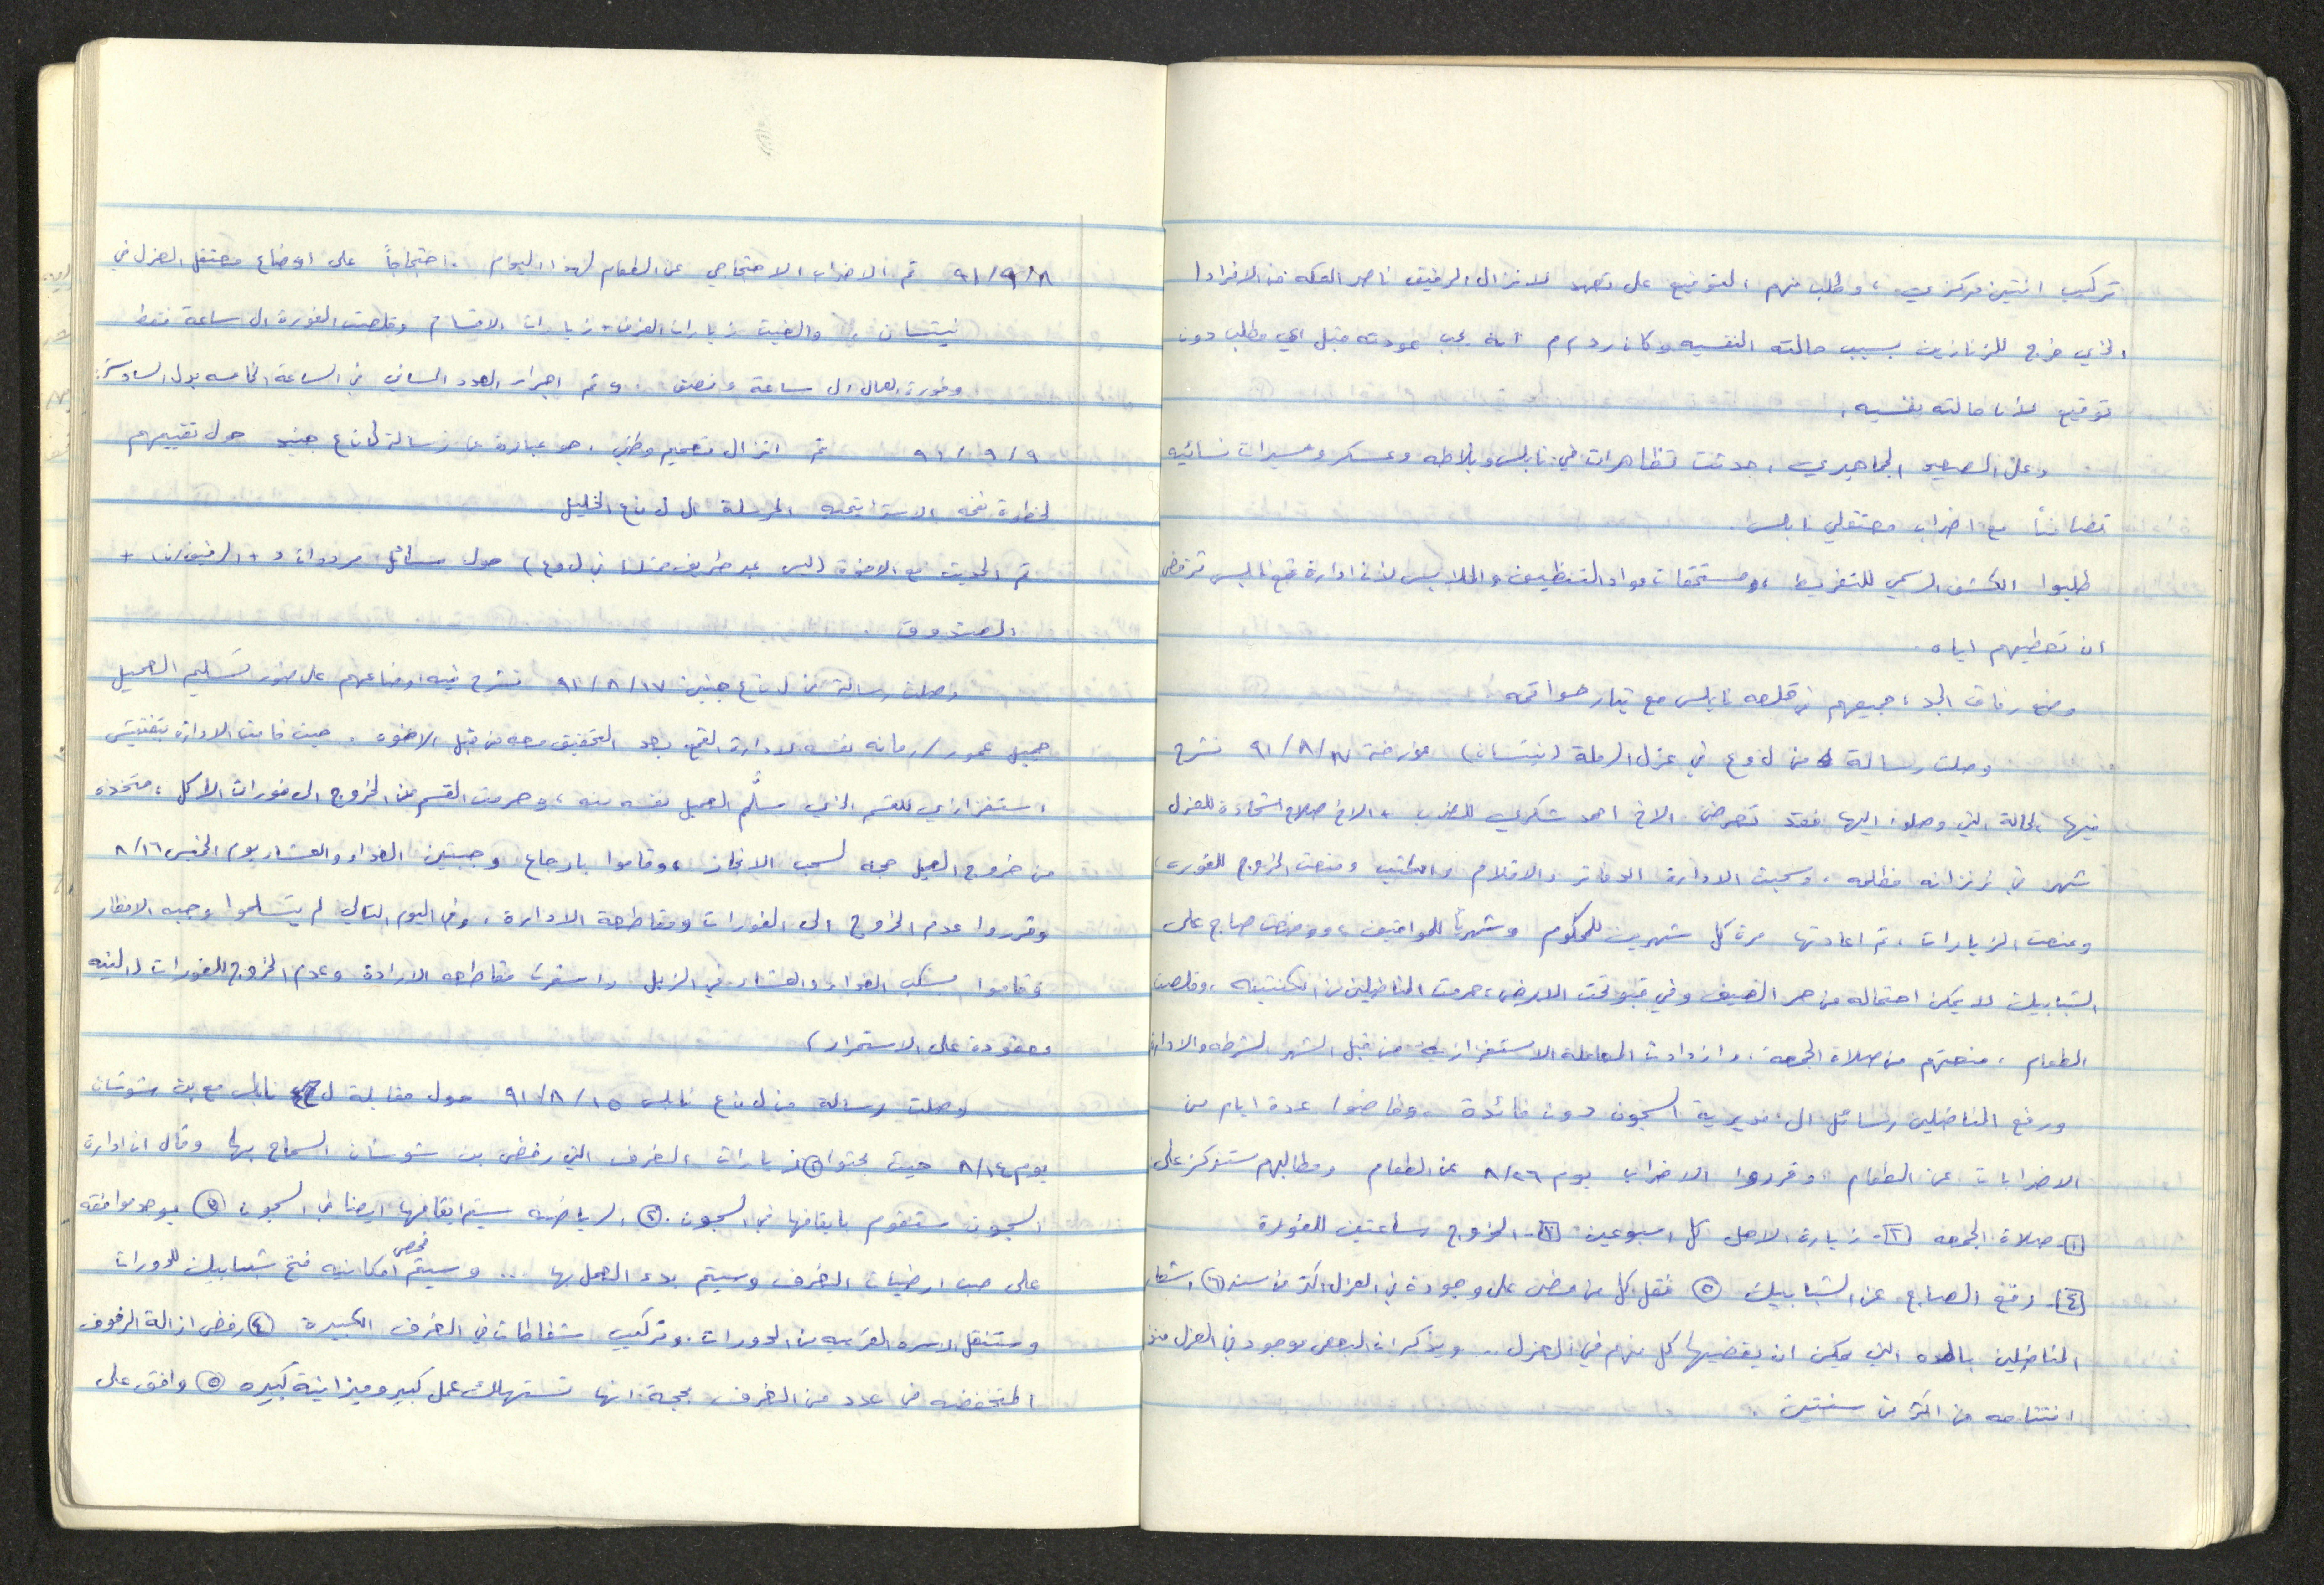 تركيب انتين مركزي ، وطلب منهم التوقيع على تعهد لانزال الرفيق ناصر العكه من الافرادا
الذي خرج للزنازين بسبب حالته النفسيه وكان ردهم انه يجب عودته قبل اي مطلب دون
توقيع لأن حالته نفسيه .
وعلى الصعيد الجماهيري ، حدثت تظاهرات في نابلس وبلاطه وعسكر ومسيرات نسائيه
تضامناً مع اضراب معتقلي نابلس .
طلبوا الكشف الرسمي للتفريط ، ومستحقات مواد التنظيف والملابس لأن ادارة قمع نابلس ترفض
ان تعطيهم اياه .
وضع رفاق الجد ، جميعهم في قلعه نابلس مع تيار حواتمه
وصلت رسالة من ل و ع في عزل الرملة (نيتسان) مؤرخة ٩١/٨/١٧ تشرح
فيها الحالة التي وصلوا اليها فقد تعرض الاخ احمد شكري للضرب + الاخ صلاح شحادة للعزل
شهر في زنزانه مظلمه ، وسحبت الادارة الدفاتر والاقلام والكتب ومنعت الخروج للفوره ،
ومنعت الزيارات ، تم اعادتها مرة كل شهرين للمحكوم وشهرياً للمواقيف ، ووضعت صاج على
الشبابيك لا يمكن احتماله من حر الصيف وفي قبو تحت الارض ، حرمت المناضلين من الكنتينه ، وقلصت
الطعام ، منعتهم من صلاة الجمعة ، وازدادت المعاملة الاستفزازية من قبل الشرطه والادارة
ورفع المناضلين رسائل الى مديرية السجون دون فائدة ، وخاضوا عدة ايام من
الاضرابات عن الطعام وقرروا الاضراب يوم ٨/٢٦ عن الطعام ومطالبهم ستركز على
[١]- صلاة الجمعه [٢]- زيارة الاهل كل اسبوعين [٣]- الخروج ساعتين للفورة
[٤]- رفع الصاج عن الشبابيك (٥) نقل كل من مضى على وجودة في العزل اكثر من سنه (٦) اشعار
المناضلين بالمده التي يمكن ان يقضيها كل منهم في العزل .. ويذكر ان البعض موجود في العزل منذ
افتتاحه من اكثر من سنتين .
٩١/٩/٨ تم الاضراب الاحتجاجي عن الطعام لهذا اليوم ، احتجاجاً على اوضاع معتقل العزل في
نيتسان ، والغيت زيارات الغرف + زيارات الاقسام وقلصت الفورة الى ساعة فقط
وفورة العمال الى ساعة ونصف . وتم اجراء العدد المسائي في الساعة الخامسه بدل السادسة .
٩١/٩/٩ تم انزال تعميم وطني ، هو عبارة عن رسالة ل ن ع جنيد حول تقييمهم
لخطوة نفحه الاستراتيجيه المرسلة الى ل ن ع الخليل
تم الحديث مع الاخوة (ليس عبد ممثلنا في ل و ع) حول مسائل مردوان د + الرفيق / ن +
الصندوق .
وصلت رسالة من ل ن ع جنين ٩١/٨/١٧ تشرح فيه اوضاعهم على ضوء تسليم العميل
جميل عمور / رمانه نفسه لادارة القمع بعد التحقيق معه من قبل الاخوه ، حيث قامت الادارة بتفتيش
استفزازي للقسم الذي سلّم العميل نفسه منه ، وحرمت القسم من الخروج الى فورات الاكل ، متخذه
من خروج العميل حجه لسحب الانجاز ، وقاموا بارجاع وجبتين الغداء والعشاء يوم الخميس ٨/١٦
وقرروا عدم الخروج الى الفورات ومقاطعة الادارة . وفي اليوم التالي لم يتسلموا وجبه الافطار
وقاموا بسكب الغداء والعشاء في الزبل واستمرت مقاطعه الادارة وعدم الخروج للفورات (والنيه
معقودة على الاستمرار)
وصلت رسالة من ل ن ع نابلس ٩١/٨/١٥ حول مقابلة ل ن ع نابلس مع بن شوشان
يوم ٨/١٤ حيث بحثوا (١) زيارات الغرف التي رفض بن شوشان السماح بها وقال ان ادارة
السجون ستقوم بايقافها في السجون . (٢) الرياضه سيتم ايقافها ايضا في السجون (٣) يوجد موافقه
على صب ارضيات الغرف وسيتم بدء العمل بها ... وسيتم فحص امكانيه فتح شبابيك للدورات
وستنقل الاسره القريبه من الدورات ، وتركيب شفاطات في الغرف الكبيرة (٤) رفض ازالة الرفوف
المنخفضه في عدد من الغرف بحجة انها تستهلك عمل كبير وميزانية كبيره (٥) وافق على